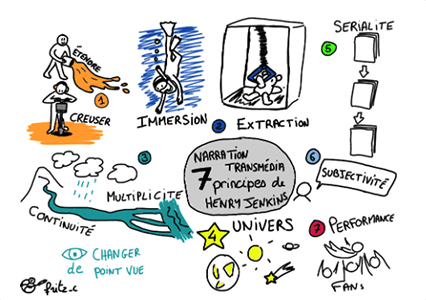 ÉTENDRE
1
CREUSER
IMMERSION
2
EXTRACTION
SERIALITE
5
3
MULTIPLICITE
CONTINUITÉ
NARRATION
TRANSMÉDIA
7 principes de
HENRY JENKINS
6
SUBJECTIVITÉ
CHANGER
de POINT VUE
4
UNIVERS
7
PERFORMANCE
FANS
fritz_c